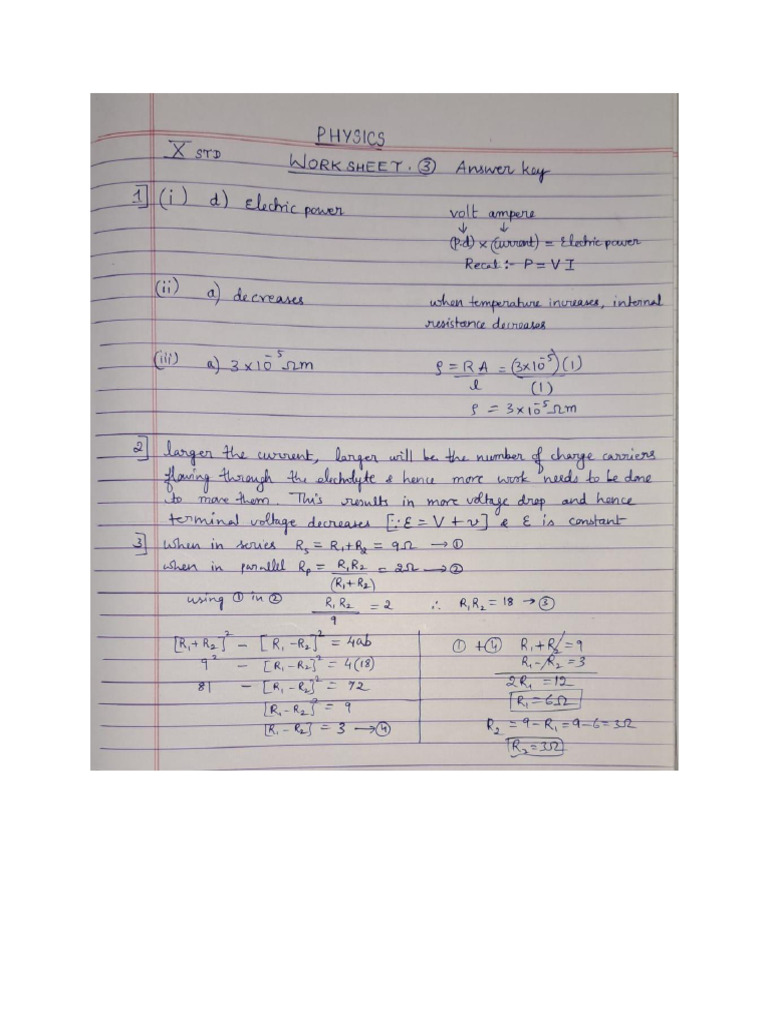 PHYSICS
X STD
WORKSHEET. ③ Answer key
1] (i) d) Electric power
volt ampere
↓ ↓
(p.d) × (current) = Electric power
Recal :- P = V I
(ii) a) decreases
when temperature increases, internal
resistance decreases
(iii) a) 3 × 10⁻⁵ Ωm
ρ = R A / l = (3×10⁻⁵)(1) / (1)
ρ = 3×10⁻⁵ Ωm
2] larger the current, larger will be the number of charge carriers
flowing through the electrolyte & hence more work needs to be done
to move them. This results in more voltage drop and hence
terminal voltage decreases [∵ ε = V + v] & ε is constant
3] when in series Rs = R₁+R₂ = 9Ω → ①
when in parallel Rp = R₁R₂ / (R₁+R₂) = 2Ω → ②
using ① in ② R₁R₂ / 9 = 2 ∴ R₁R₂ = 18 → ③
[R₁+R₂]² − [R₁−R₂]² = 4ab
9² − [R₁−R₂]² = 4(18)
81 − [R₁−R₂]² = 72
[R₁−R₂]² = 9
[R₁−R₂] = 3 → ④
① + ④ R₁+R₂ = 9
R₁−R₂ = 3
2R₁ = 12
R₁ = 6Ω
R₂ = 9−R₁ = 9−6 = 3Ω
R₂ = 3Ω